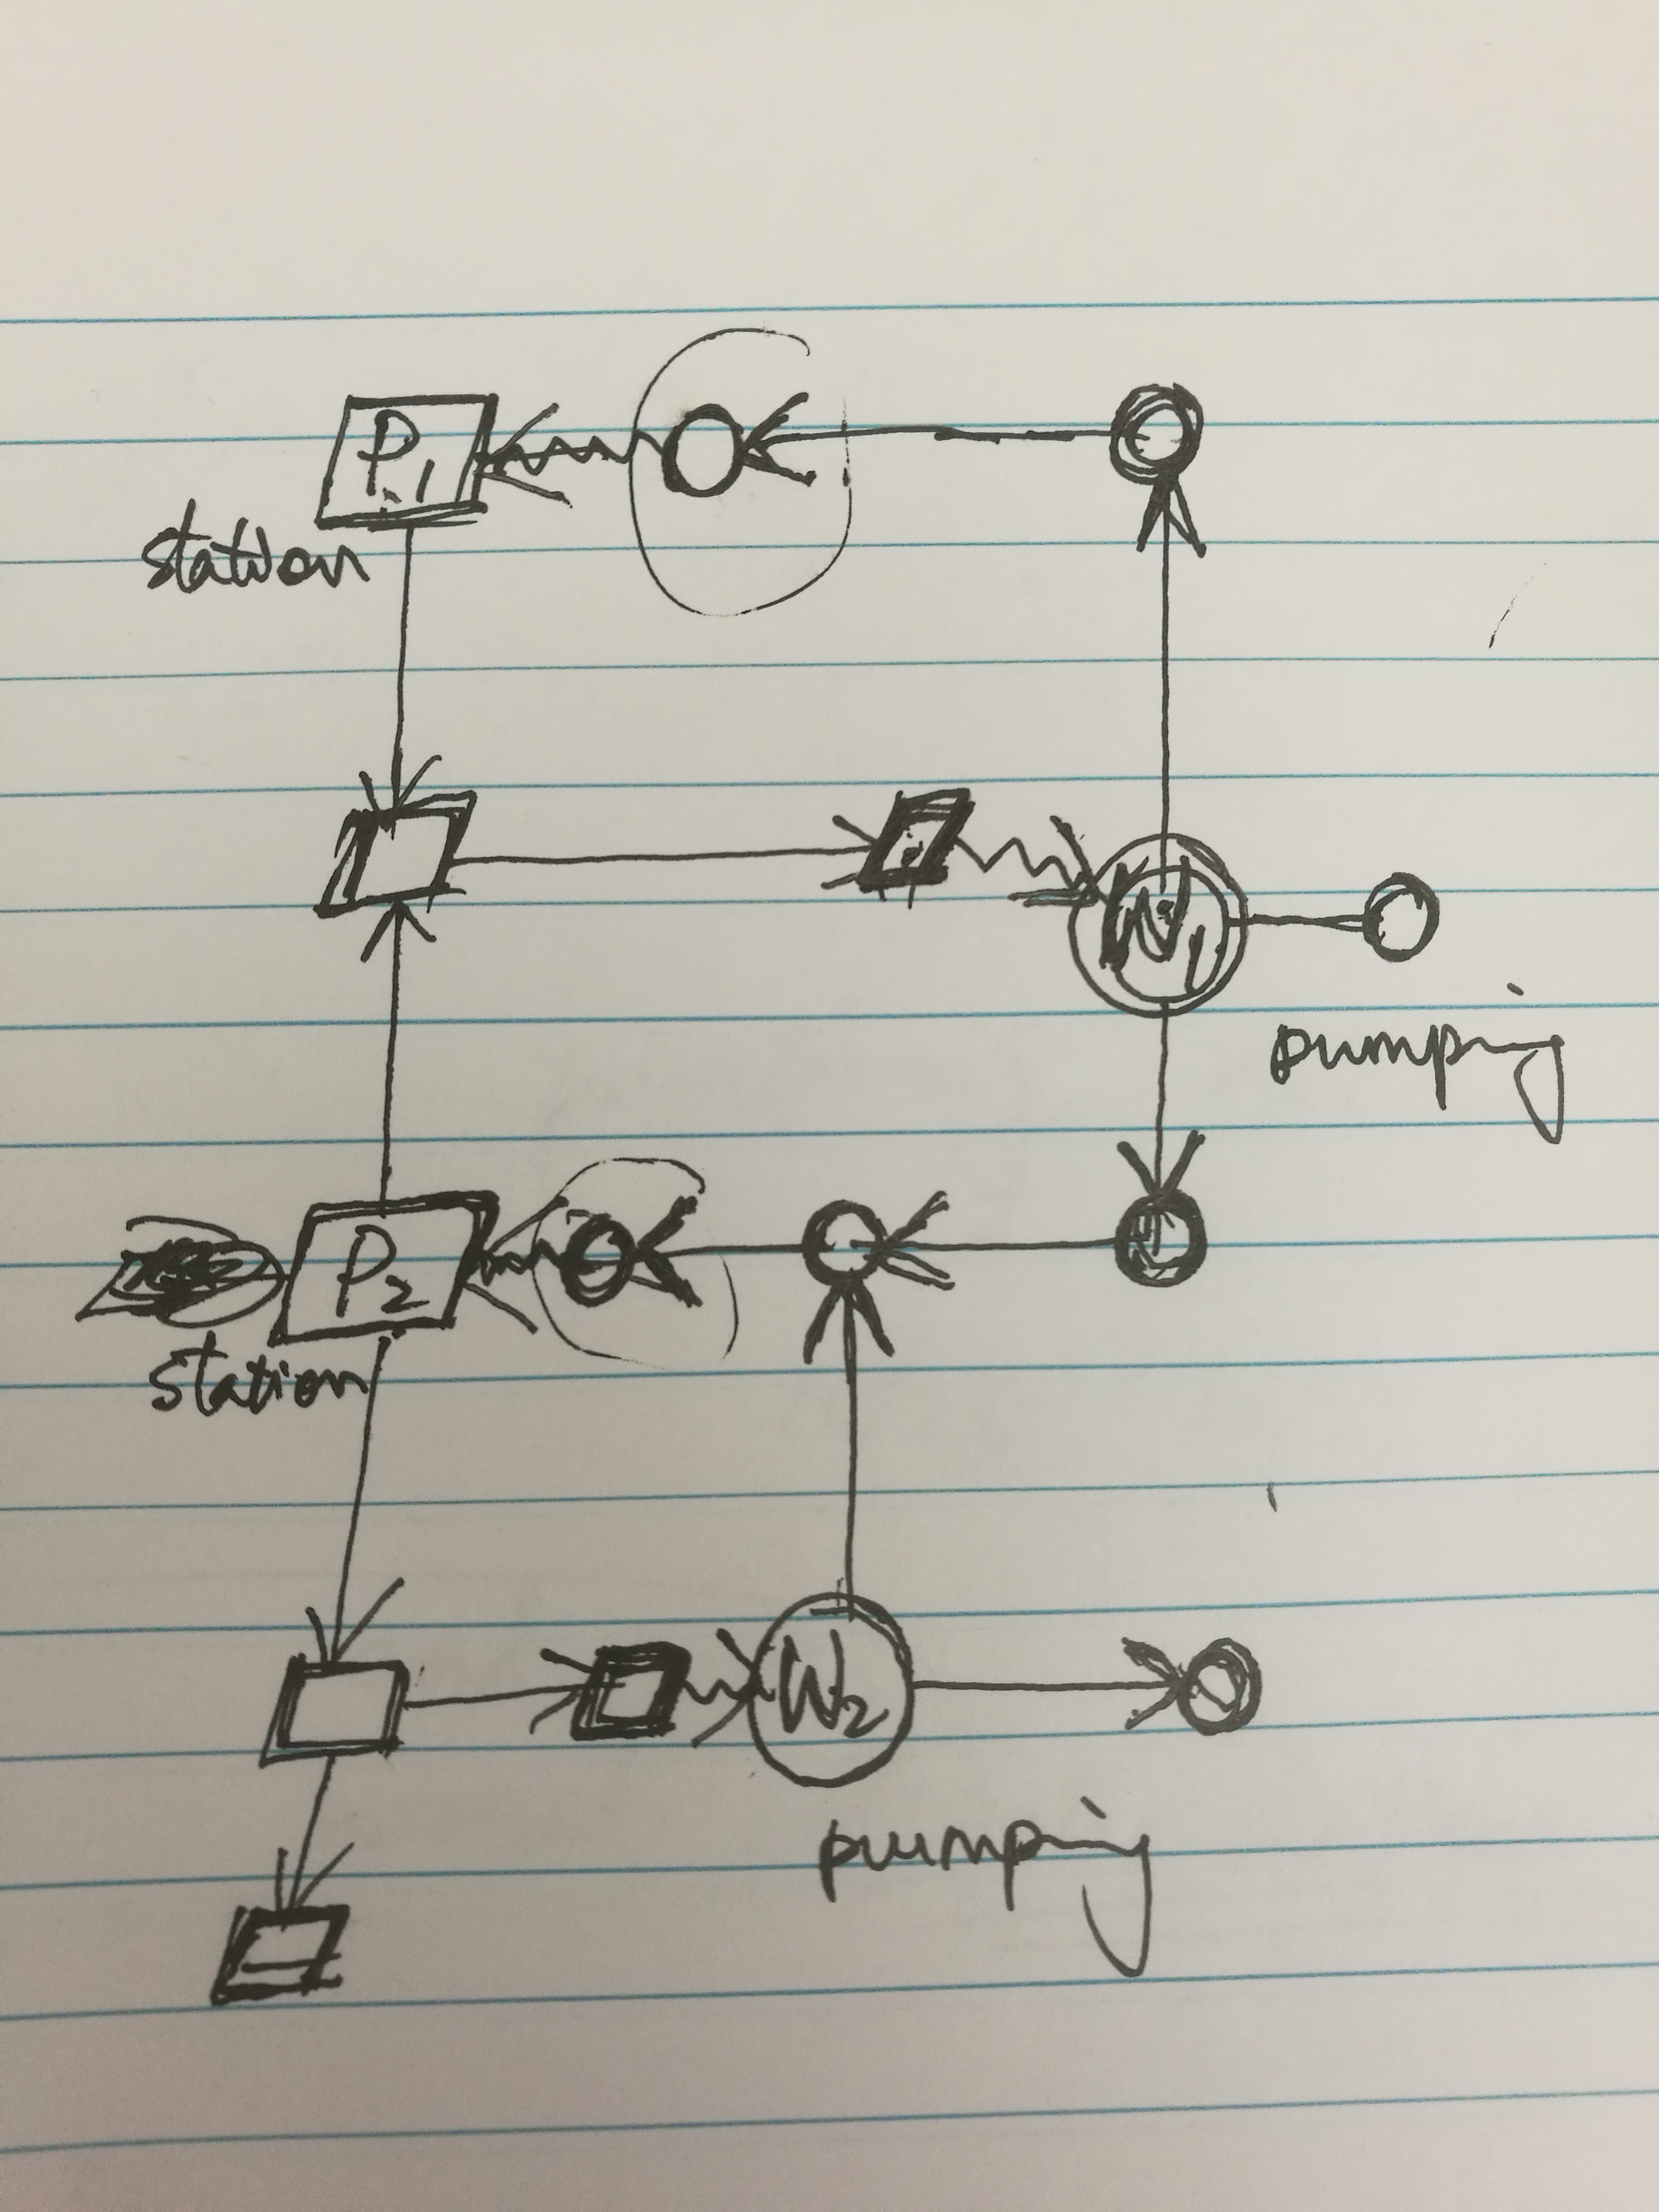 P1
station
W1
pumping
P2
station
W2
pumping